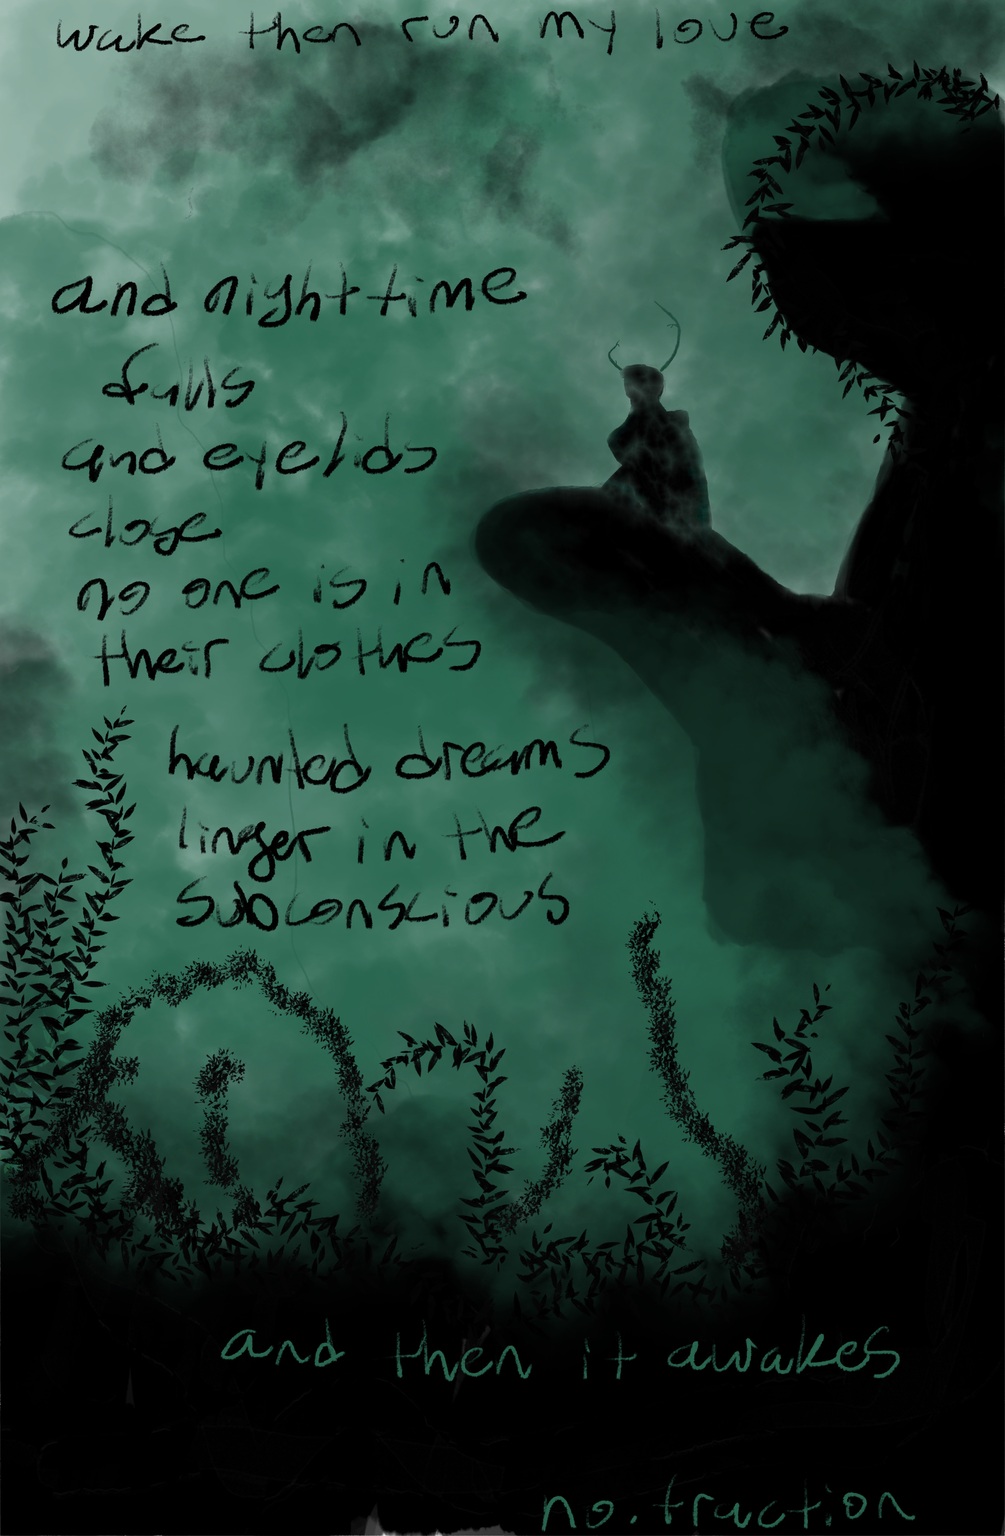 wake then run my love
and nighttime
falls
and eyelids
close
no one is in
their clothes
haunted dreams
linger in the
subconscious
and then it awakes
no.traction